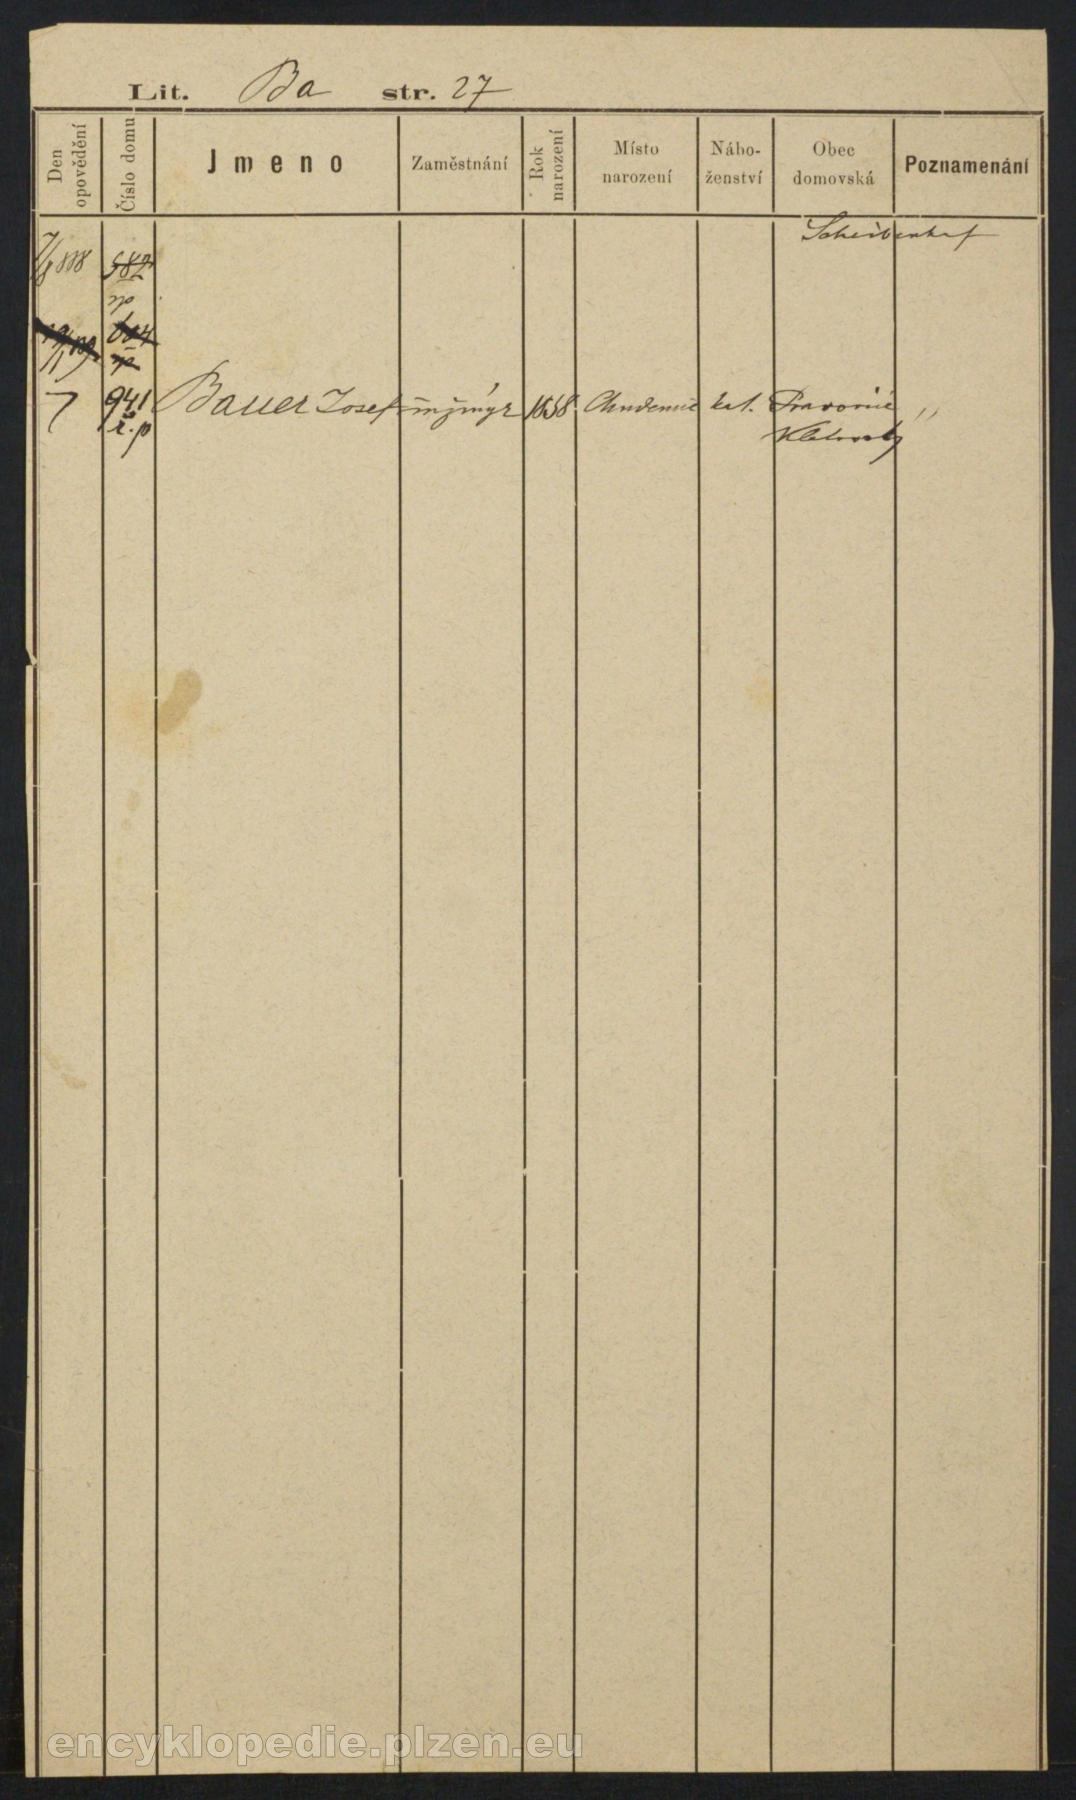 Lit. Ba str. 27
Den opovědění
Číslo domu
Jmeno
Zaměstnání
Rok narození
Místo narození
Nábo-
ženství
Obec domovská
Poznamenání
Scheibenhof
582
604
7 941 Bauer Josef inžinýr 1858 Chudenic kat. Pravonic "
ř. p Klatovsky
encyklopedie.plzen.eu